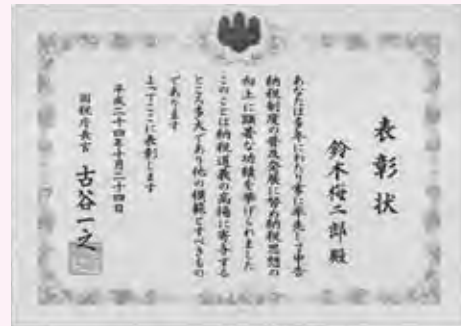 表彰状
鈴木梅二郎殿
あなたは多年にわたり常に率先して申告
納税制度の普及発展に努め納税思想の
向上に顕著な功績を挙げられました
このことは納税道義の高揚に寄与する
ところ多大であり他の模範とすべきもの
であります
よってここに表彰します
平成二十四年十月二十四日
国税庁長官 古谷一之